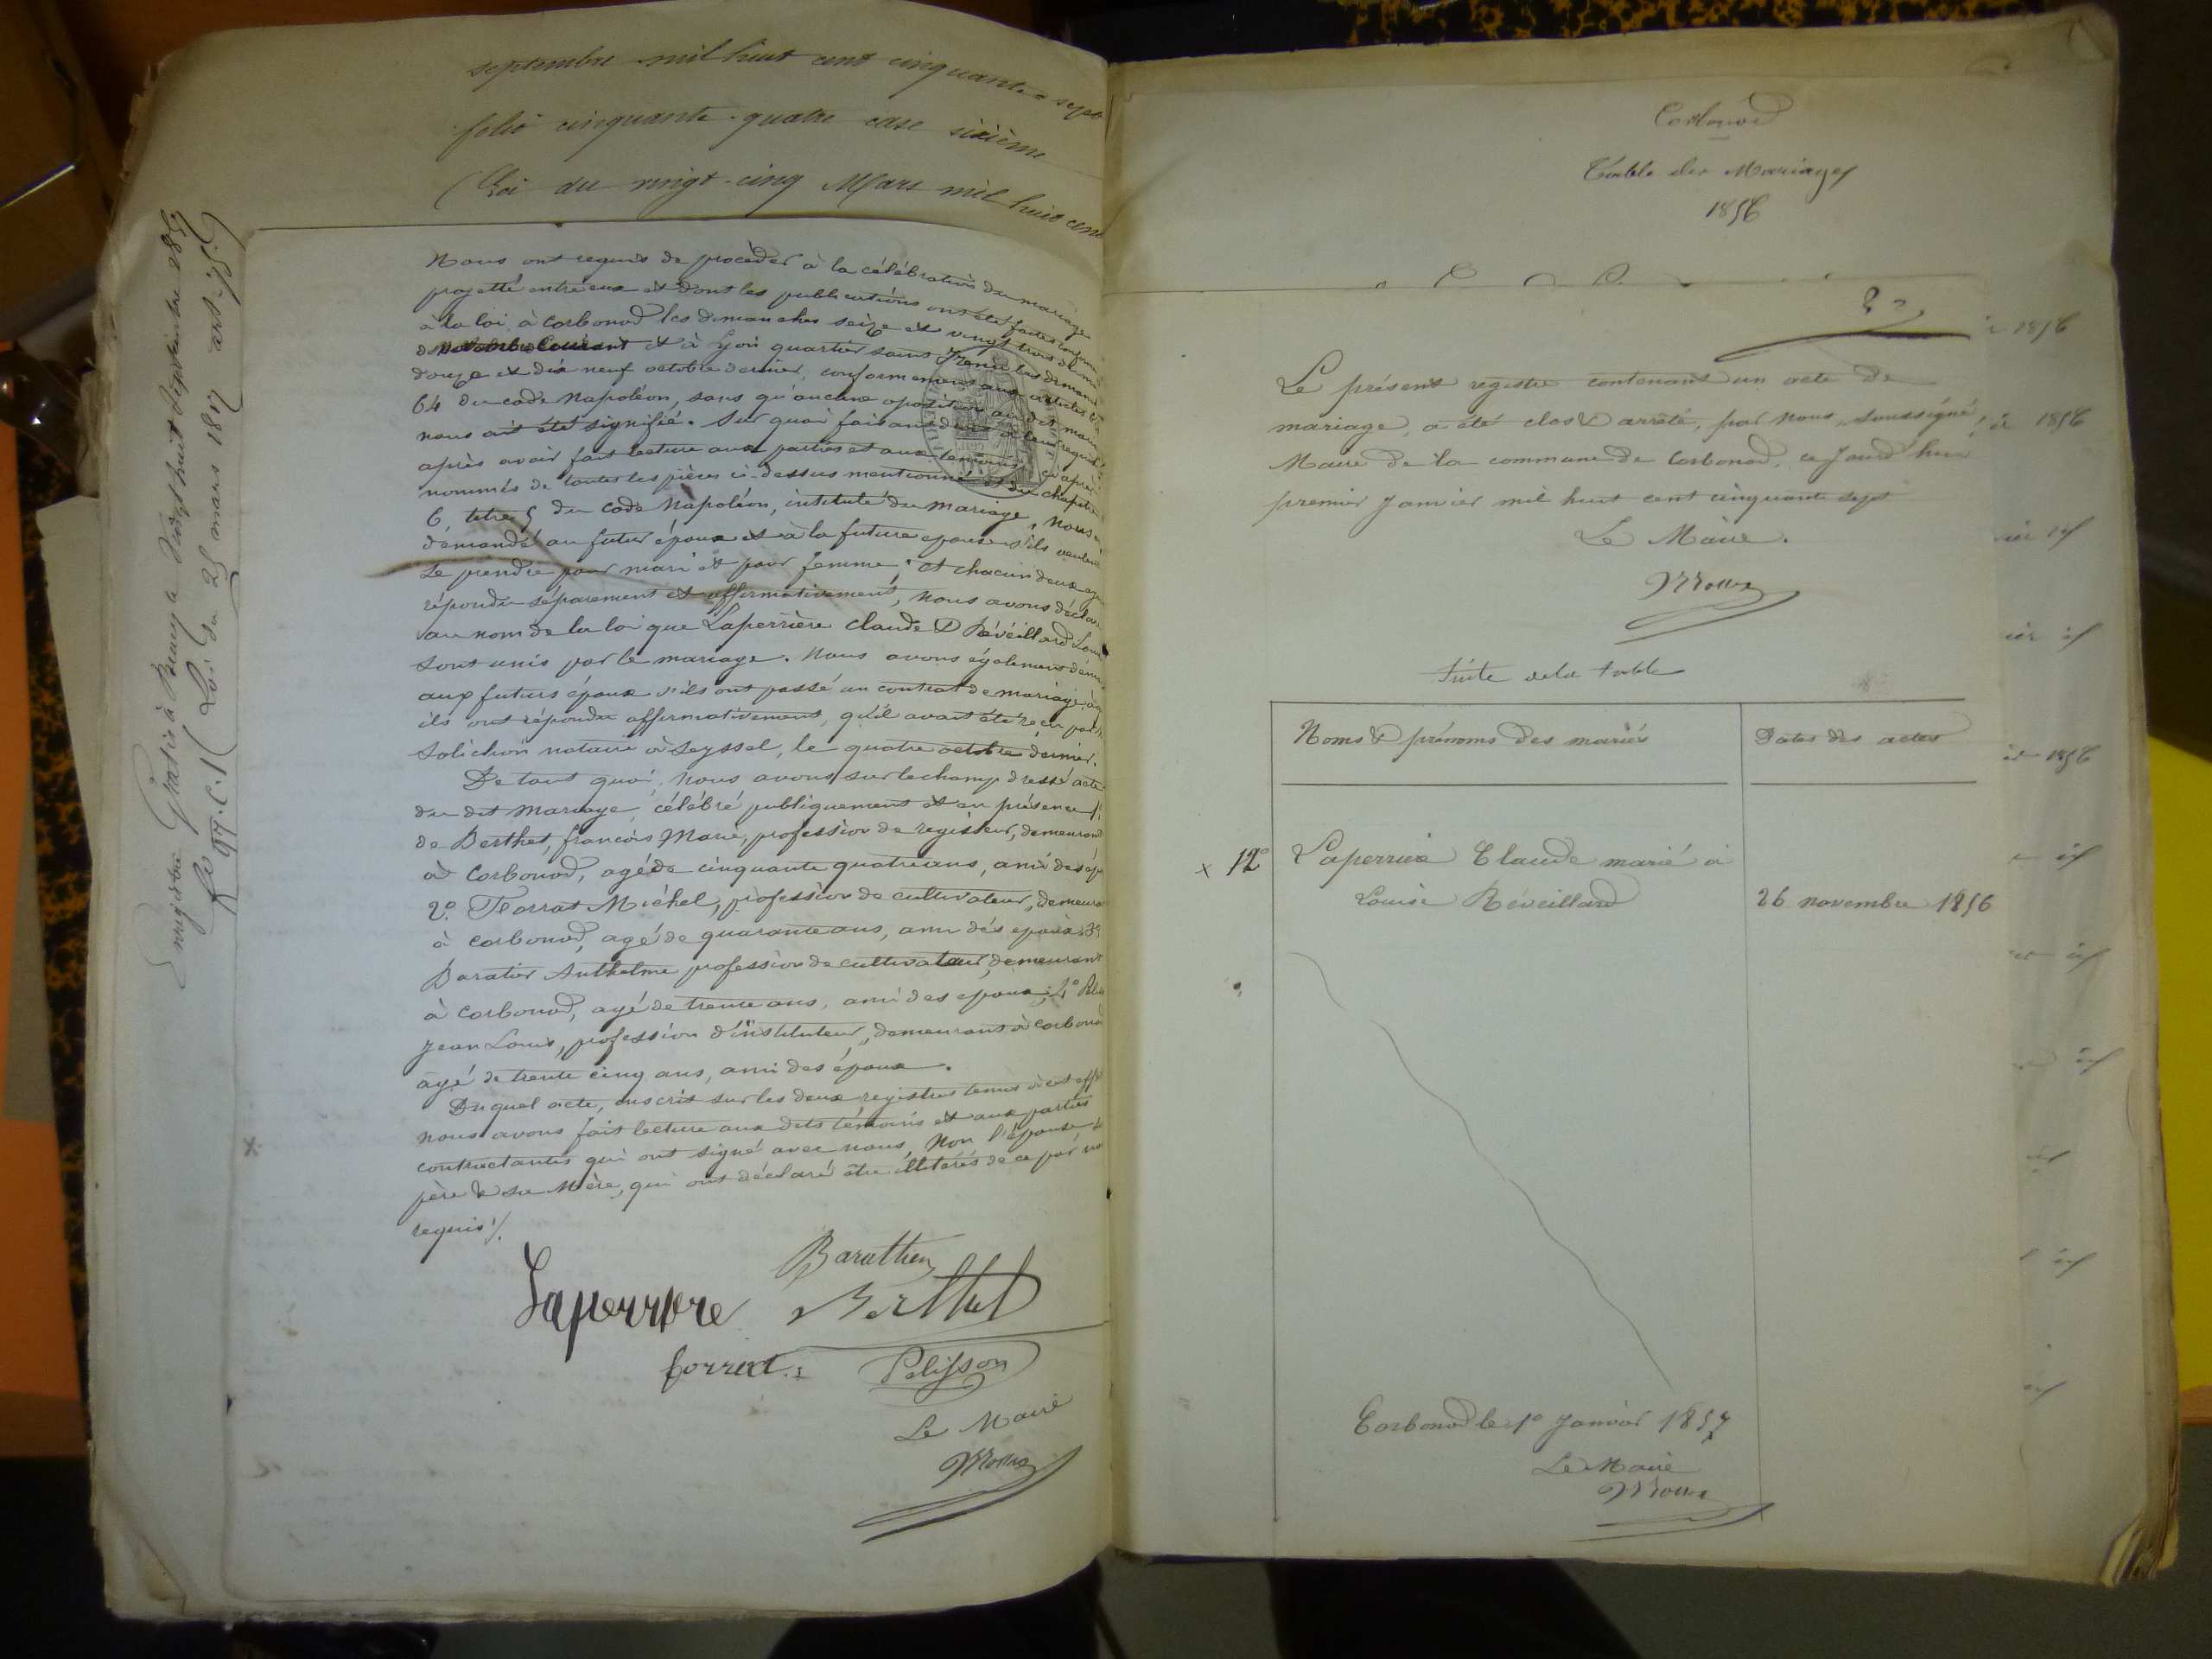 septembre mil huit cent cinquante-sept
folio cinquante-quatre case sixième
(Loi du vingt-cinq Mars mil huit cent
Enregistré Gratis à Le Vingt huit Septembre 1857
fo 97 C. 1 (Loi du 25 mars 1817 art 75)
Nous ont requis de procéder à la célébration du mariage
projetté entre eux et dont les publications ont été faites
à la loi, à Corbonod les dimanches seize et vingt trois
novembre courant et à Lyon quartier saint les
douze et dix neuf octobre dernier, conformément aux articles
64 du code Napoléon, sans qu'aucune oposition au dit
nous ait été signifié. Sur quoi faisant droit à leur
après avoir fait lecture aux parties et aux témoins ci après
nommés de toutes les pièces ci-dessus mentionné et du chapitre
6, titre 5 du code Napoléon, intitulé du mariage, Nous
demandé au futur époux et à la future epouse s'ils veulent
se prendre pour mari et pour femme; et chacun deux
répondu séparement et affirmativement, nous avons
au nom de la loi que Laperrière Claude & Réveillard
sont unis par le mariage. Nous avons également
aux futurs époux s'ils ont passé un contrat de mariage,
ils ont répondu affirmativement, qu'il avait été reçu par
Solichon notaire à Seyssel, le quatre octobre dernier.
De tout quoi, nous avons sur le champ dressé acte
du dit mariage, célébré publiquement et en présence 1°
de Berthet, françois Marie, profession de regisseur, demeurant
à Corbonod, agé de cinquante quatre ans, ami des
2° Forrat Michel, profession de cultivateur,
à Corbonod, agé de quarante ans, ami des epoux; 3°
Baratier Anthelme profession de cultivateur, demeurant
à Corbonod, agé de trente ans, ami des epoux; 4°
Jean Louis, profession d'instituteur, demeurant à Corbonod
âgé de trente cinq ans, ami des époux.
Duquel acte, inscrit sur les deux registres tenus à cet
nous avons fait lecture aux dits témoins et aux parties
contractantes qui ont signé avec nous, Non l'épouse
père & sa Mère, qui ont déclaré être illiterés de ce par
requis ./.
Barathier
Laperrière Berthet
forrat Pelisson
Le Maire
Corbonod
Table des Mariages
1856
Le présent registre contenant un acte de
mariage, a été clos & arrêté, par nous, soussigné,
Maire de la commune de Corbonod, ce Jourd'hui
premier Janvier mil huit cent cinquante sept
Le Maire.
Suite de la table
Noms & prénoms des mariés Dates des actes
x 12° Laperrière Claude marié à
Louise Réveillard 26 novembre 1856
Corbonod le 1° Janvier 1857
Le Maire